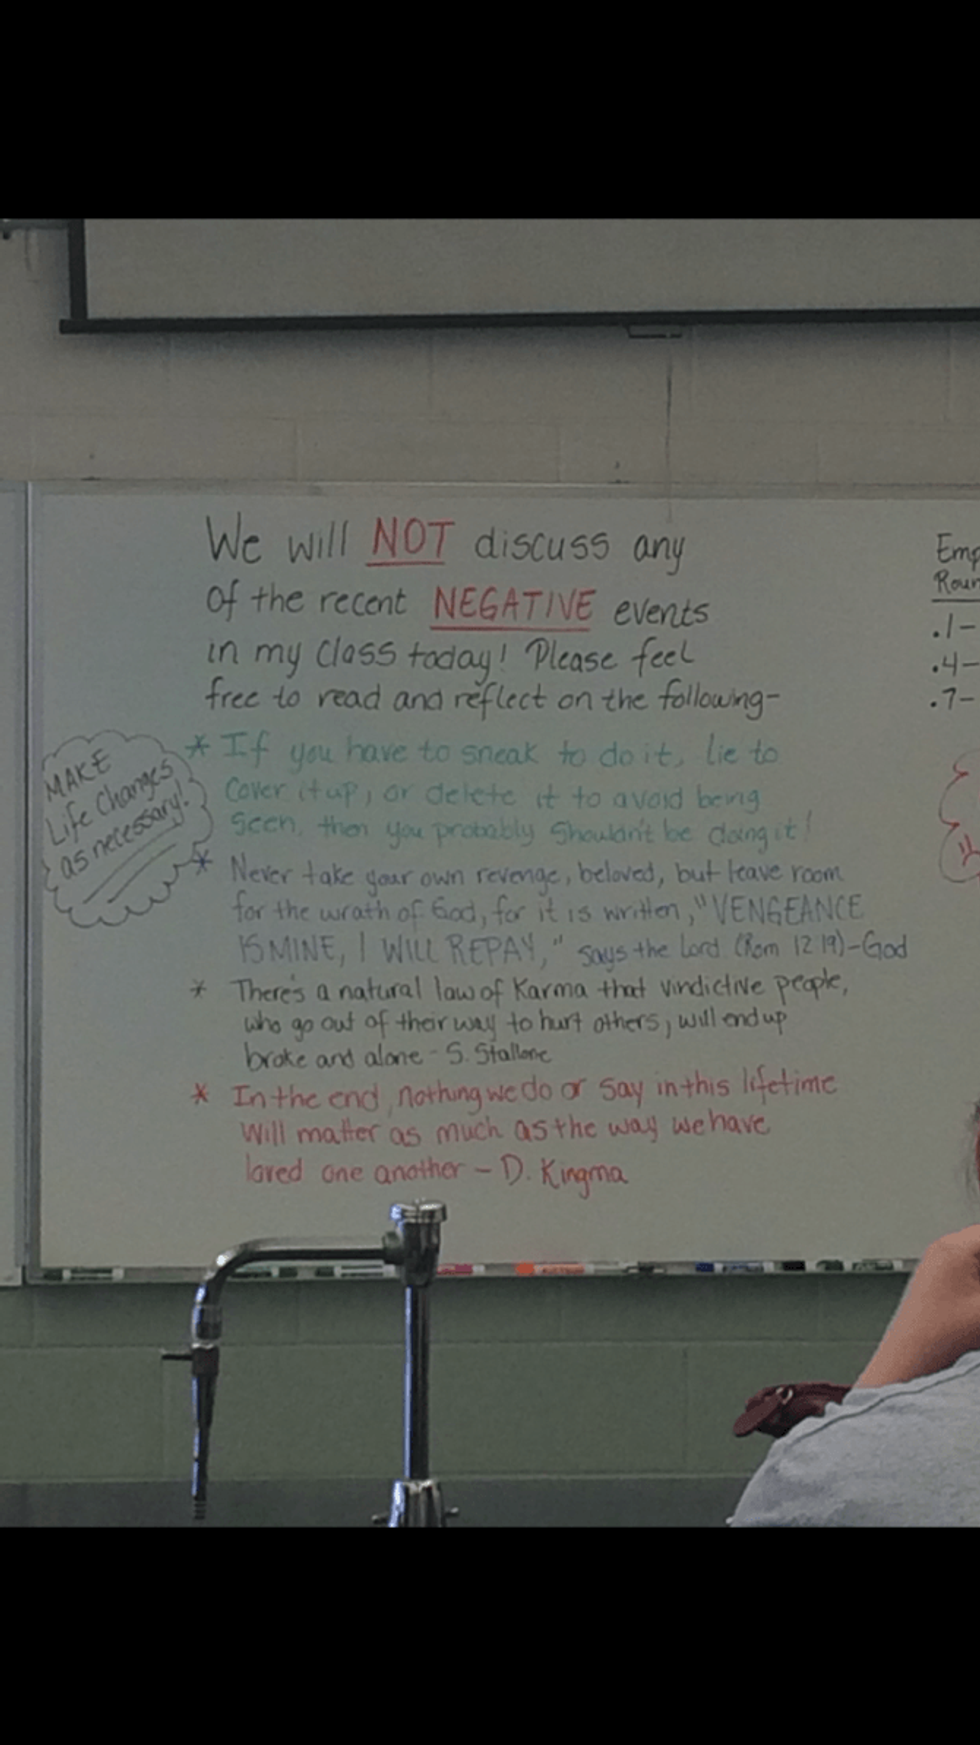 We will NOT discuss any
of the recent NEGATIVE events
in my class today! Please feel
free to read and reflect on the following-
* If you have to sneak to do it, lie to
cover it up, or delete it to avoid being
seen, then you probably shouldn't be doing it!
* Never take your own revenge, beloved, but leave room
for the wrath of God, for it is written, "VENGEANCE
IS MINE, I WILL REPAY," says the Lord (Rom 12 19)-God
* There's a natural law of Karma that vindictive people,
who go out of their way to hurt others, will end up
broke and alone - S. Stallone
* In the end, nothing we do or say in this lifetime
will matter as much as the way we have
loved one another - D. Kingma
MAKE
Life Changes
as necessary!
Emp
Roun
.1-
.4-
.7-